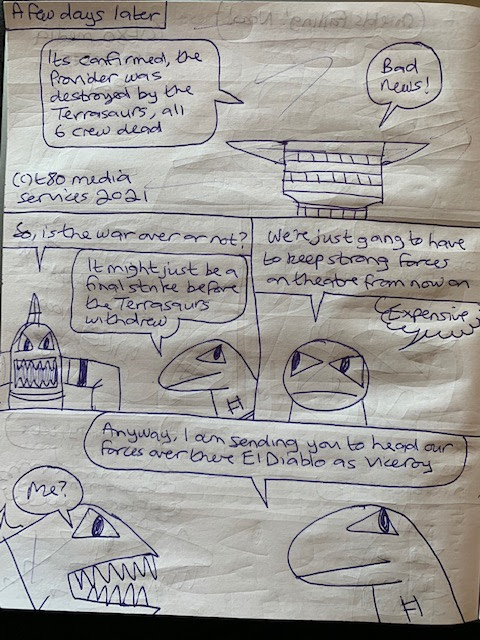 A few days later
Its confirmed, the
Provider was
destroyed by the
Terrasaurs, all
6 crew dead
Bad
news!
(c) t80 media
services 2021
So, is the war over or not?
It might just be a
final strike before
the Terrasaurs
withdrew
We're just gang to have
to keep strong forces
on theatre from now on
Expensive
Anyway, I am sending you to head our
forces over there El Diablo as Viceroy
Me?